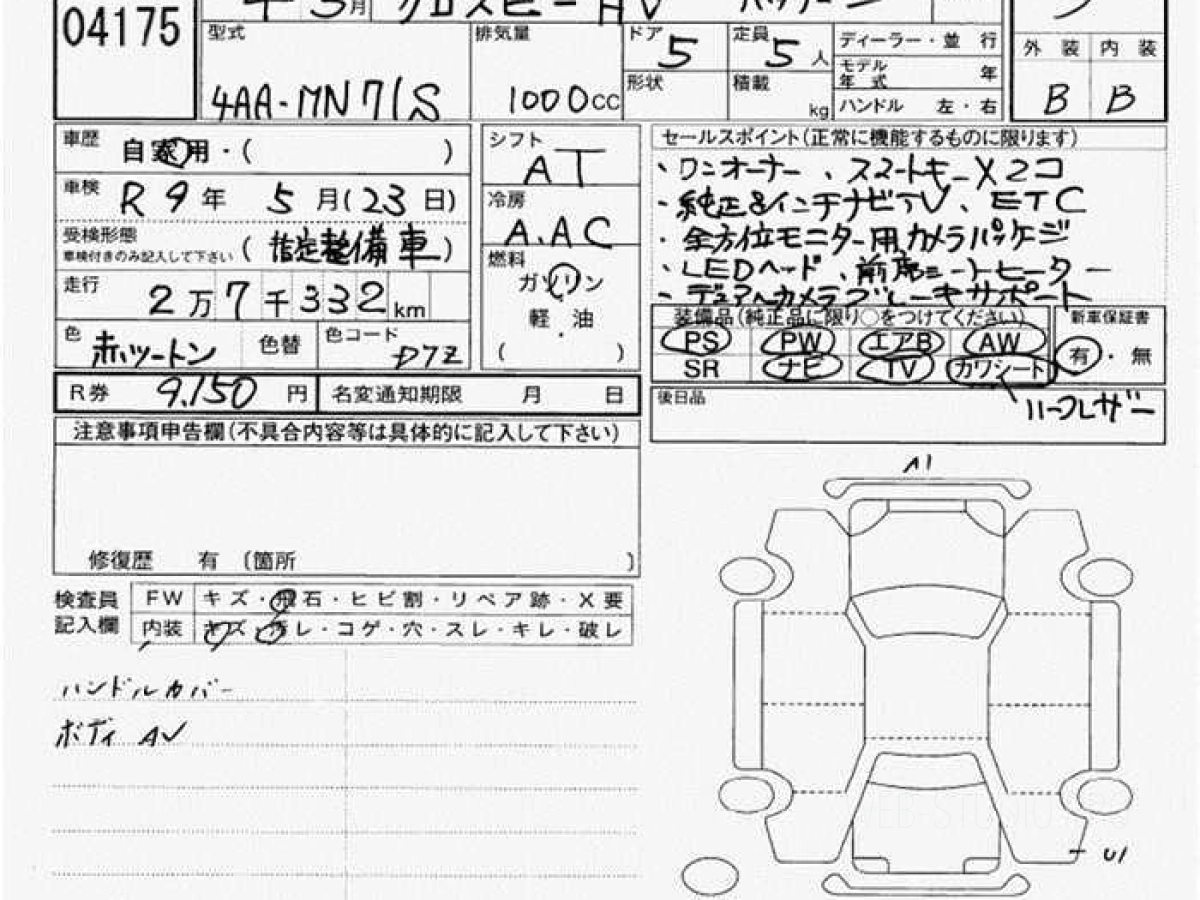 04175
3月 クロスビー HV
型式 4AA-MN71S
排気量 1000cc
ドア 5
定員 5人
形状
積載 kg
ディーラー・並行
モデル年式 年
ハンドル 左・右
外装 内装
B B
車歴 自家用・( )
車検 R9年 5月(23日)
受検形態
車検付きのみ記入して下さい (指定整備車)
走行 2万7千332km
色 赤ツートン 色替 色コード D7Z
シフト AT
冷房 A.AC
燃料 ガソリン
軽・油
( )
セールスポイント(正常に機能するものに限ります)
・ワンオーナー、スマートキーX2コ
・純正8インチナビTV、ETC
・全方位モニター用カメラパッケージ
・LEDヘッド、前席シートヒーター
・デュアルカメラブレーキサポート
装備品(純正品に限り○をつけてください)
PS PW エアB AW
SR ナビ TV カワシート
新車保証書
有・無
ハーフレザー
R券 9,150円 名変通知期限 月 日
後日品
注意事項申告欄(不具合内容等は具体的に記入して下さい)
修復歴 有 〔箇所 〕
検査員記入欄
FW キズ・飛石・ヒビ割・リペア跡・X要
内装 キズ・汚レ・コゲ・穴・スレ・キレ・破レ
ハンドルカバー
ボディ AV
A1
U1